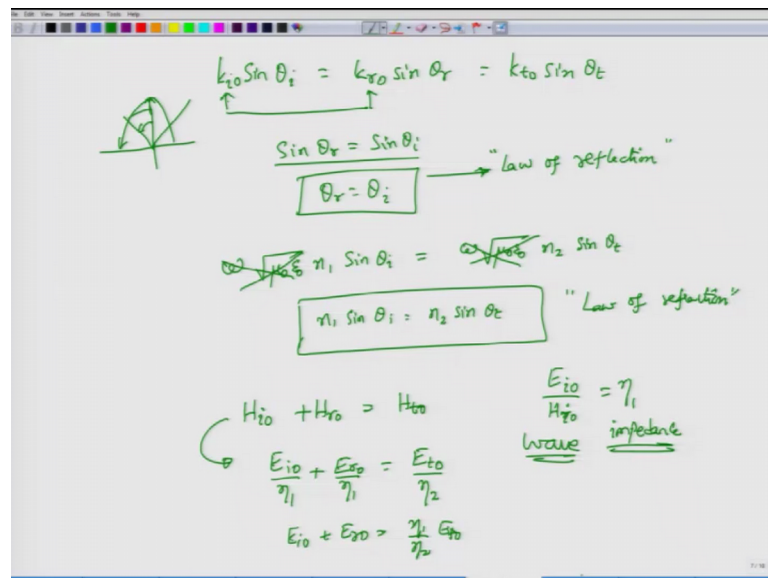 File Edit View Insert Actions Tools Help
k_io Sin θ_i = k_ro sin θ_r = k_to Sin θ_t
Sin θ_r = Sin θ_i
θ_r = θ_i → "Law of reflection"
ω √μ₀ε₀ n₁ Sin θ_i = ω √μ₀ε₀ n₂ Sin θ_t
n₁ sin θ_i = n₂ sin θ_t "Law of refraction"
H_io + H_ro = H_to
E_io / H_io = η₁
wave impedance
E_io/η₁ + E_ro/η₁ = E_to/η₂
E_io + E_ro = η₁/η₂ E_to
7/16